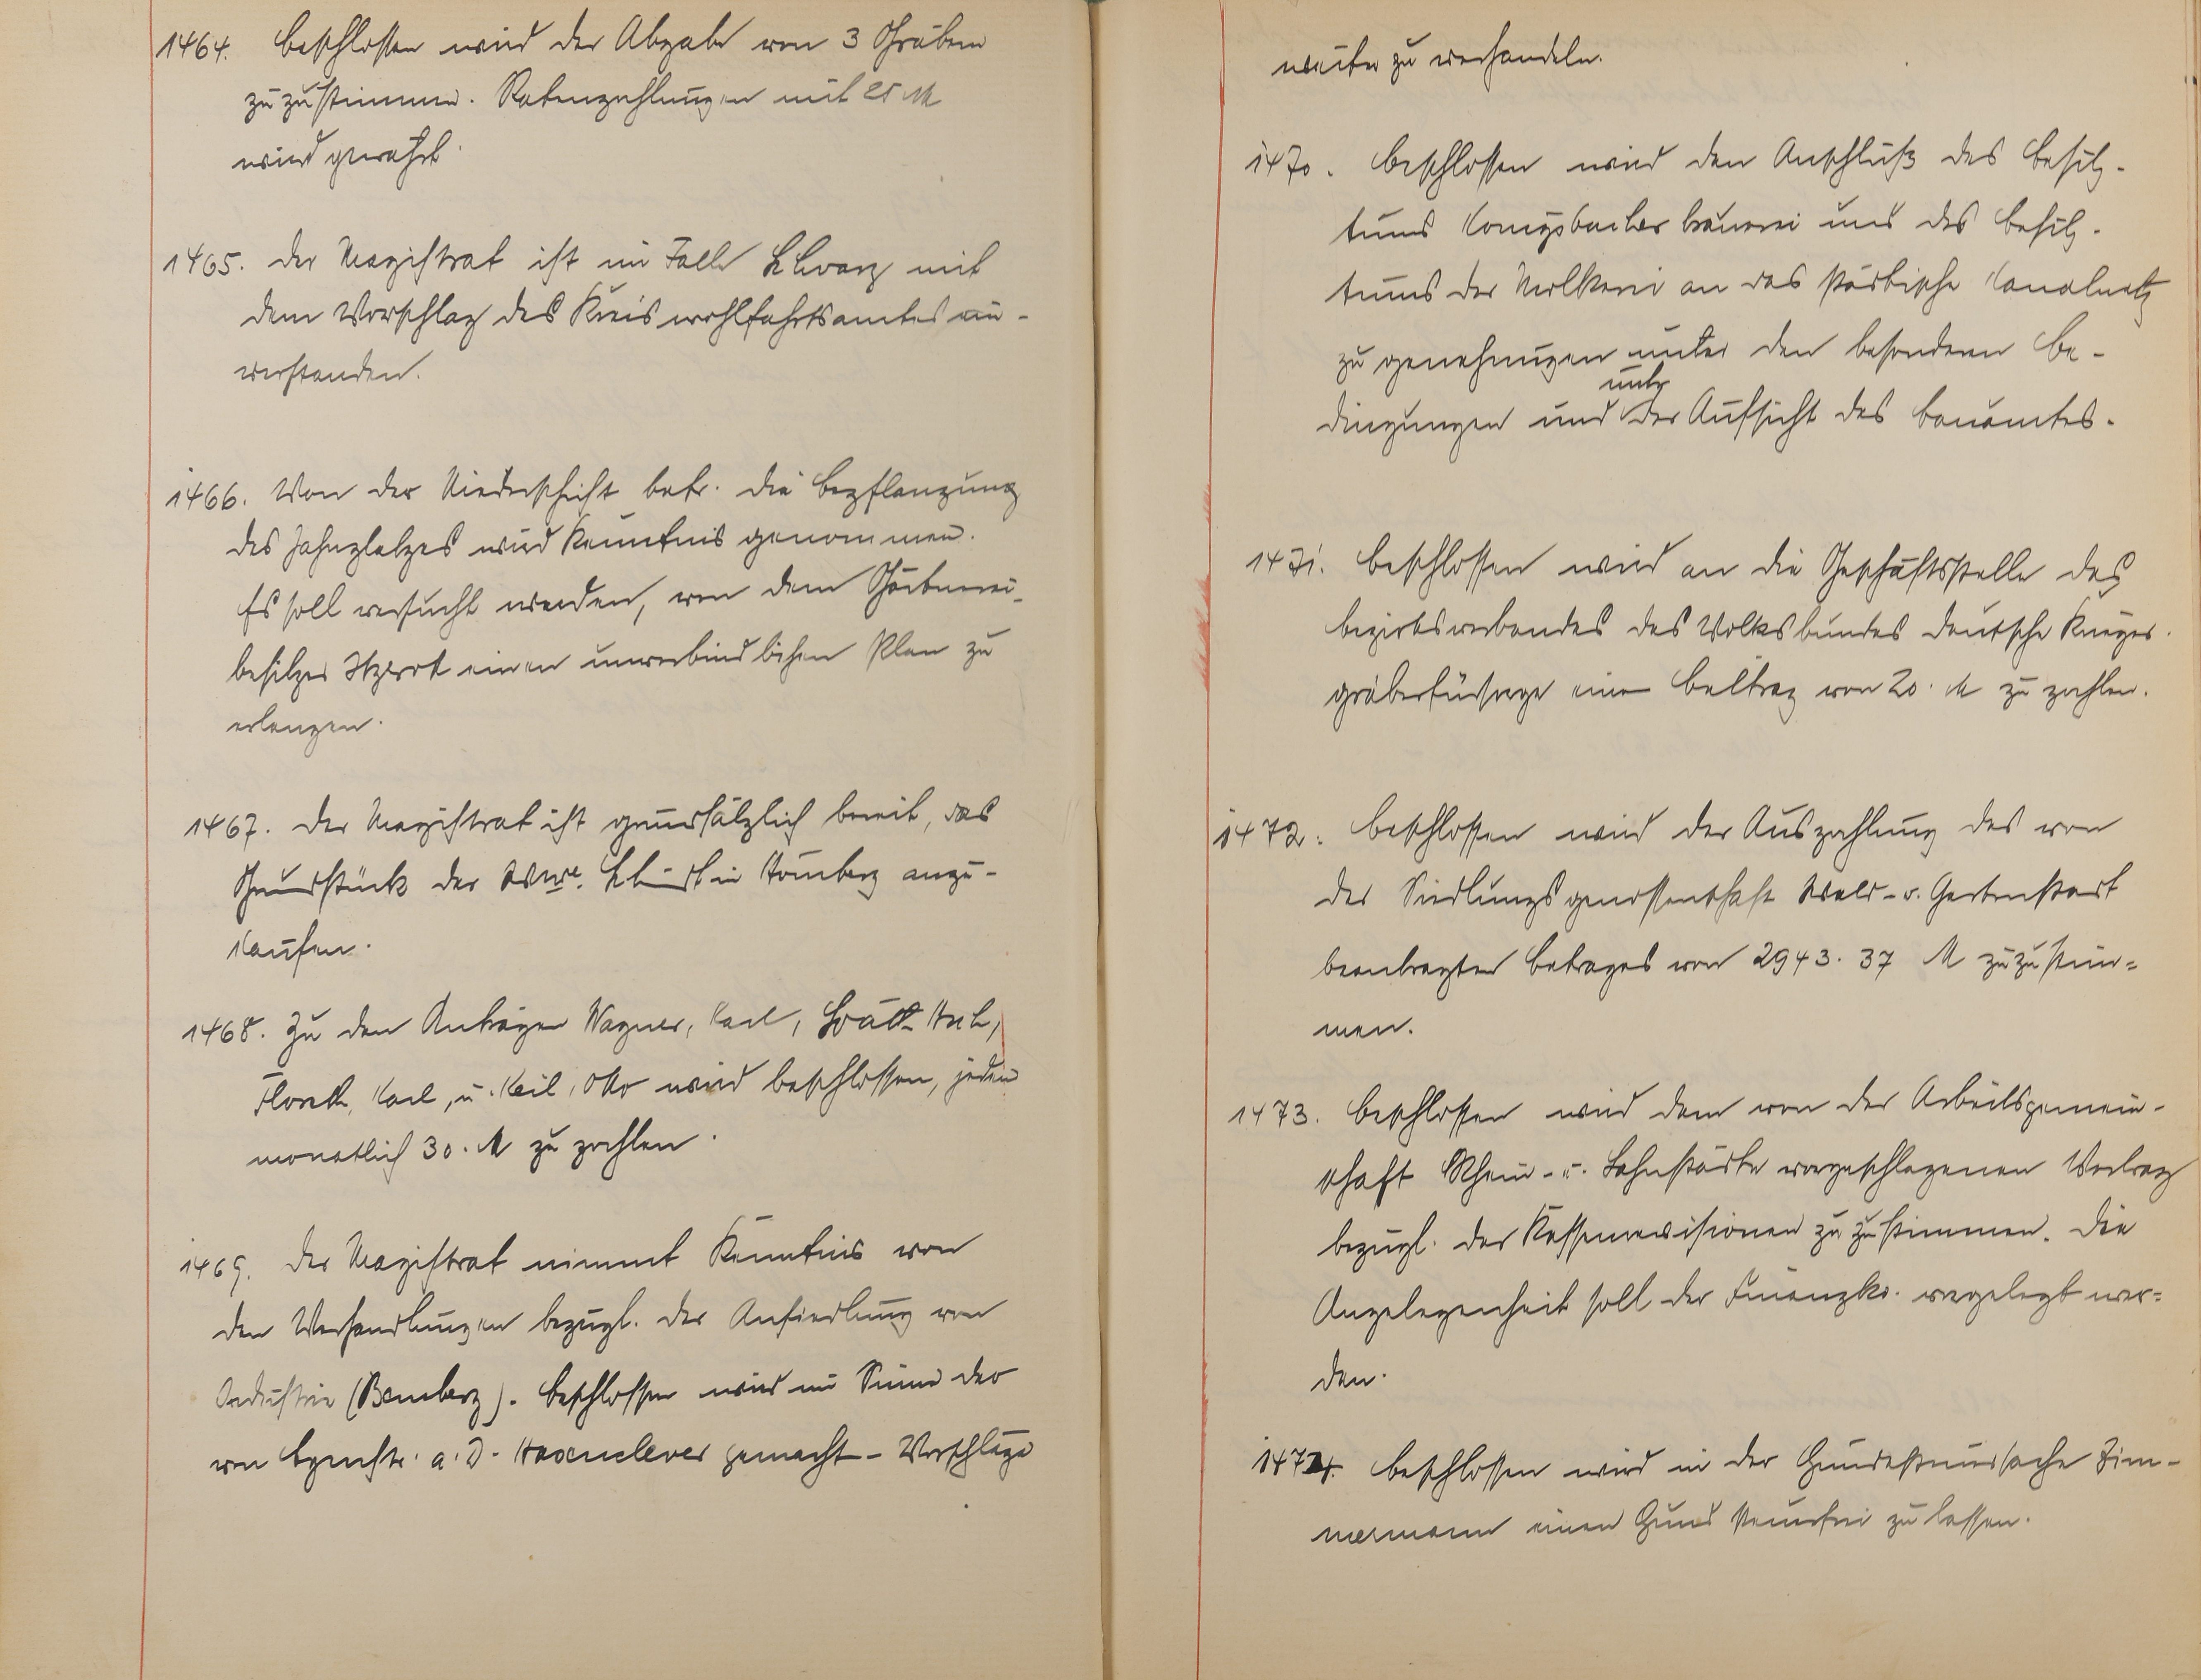 1464. Beschlossen wird der Abgabe von 3 Gräbern
zuzustimmen. Ratenzahlungen mit 25 M
wird gewährt.
1465. Der Magistrat ist im Falle Schwarz mit
dem Vorschlag des Kreiswohlfahrtsamtes ein-
verstanden.
1466. Von der Niederschrift betr. die Bepflanzung
des Jahnplatzes wird Kenntnis genommen.
Es soll versucht werden, von dem Gärtnerei-
besitzer einen unverbindlichen Plan zu
erlangen.
1467. Der Magistrat ist grundsätzlich bereit, das
Grundstück der Wwe. in Homberg anzu-
kaufen.
1468. Zu den Anträgen Wagner, Karl,
Karl, u. Keil, Otto wird beschlossen, jedem
monatlich 30. M zu zahlen.
1469. Der Magistrat nimmt Kenntnis von
den Verhandlungen bezügl. der Ansiedlung von
Industrie (Bemberg). Beschlossen wird im Sinne der
von Bgmstr. a. D. Hasenclever gemacht Vorschläge
weiter zu verhandeln.
1470. Beschlossen wird den Anschluß des Besitz-
tums Königsbacher Brauerei und des Besitz-
tums der Molkerei an das städtische Kanalnetz
zu genehmigen unter den besonderen Be-
dingungen und unter der Aufsicht des Bauamtes.
1471. Beschlossen wird an die Geschäftsstelle des
Bezirksverbandes des Volksbundes deutsche Krieger-
gräberfürsorge einen Beitrag von 20. M zu zahlen.
1472. Beschlossen wird der Auszahlung des von
der Siedlungsgenossenschaft Wald- u. Gartenstadt
beantragten Betrages von 2943. 37 M zuzustim=
men.
1473. Beschlossen wird dem von der Arbeitsgemein-
schaft Rhein- u. Lahnstädte vorgeschlagenen Vertrag
bezügl. der Kassenrevisionen zuzustimmen. Die
Angelegenheit soll der Finanzko. vorgelegt wer=
den.
1474. Beschlossen wird in der Hundesteuersache Zim-
mermann einen Hund steuerfrei zu lassen.